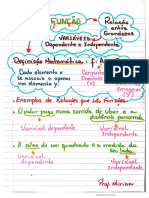 FUNÇÃO
Relação
entre
Grandezas
VARIÁVEIS
Dependente e Independente
Definição Matemática: f: A
Cada elemento x
se associa a apenas
um elemento y!
Imagem
Exemplos de Relações que são Funções
O valor pago numa corrida de Uber e a
distância percorrida
Variável dependente
Variável
independente
A área de um quadrado e a medida
do seu lado.
Variável
dependente
Variável
independente
Prof. Miriam